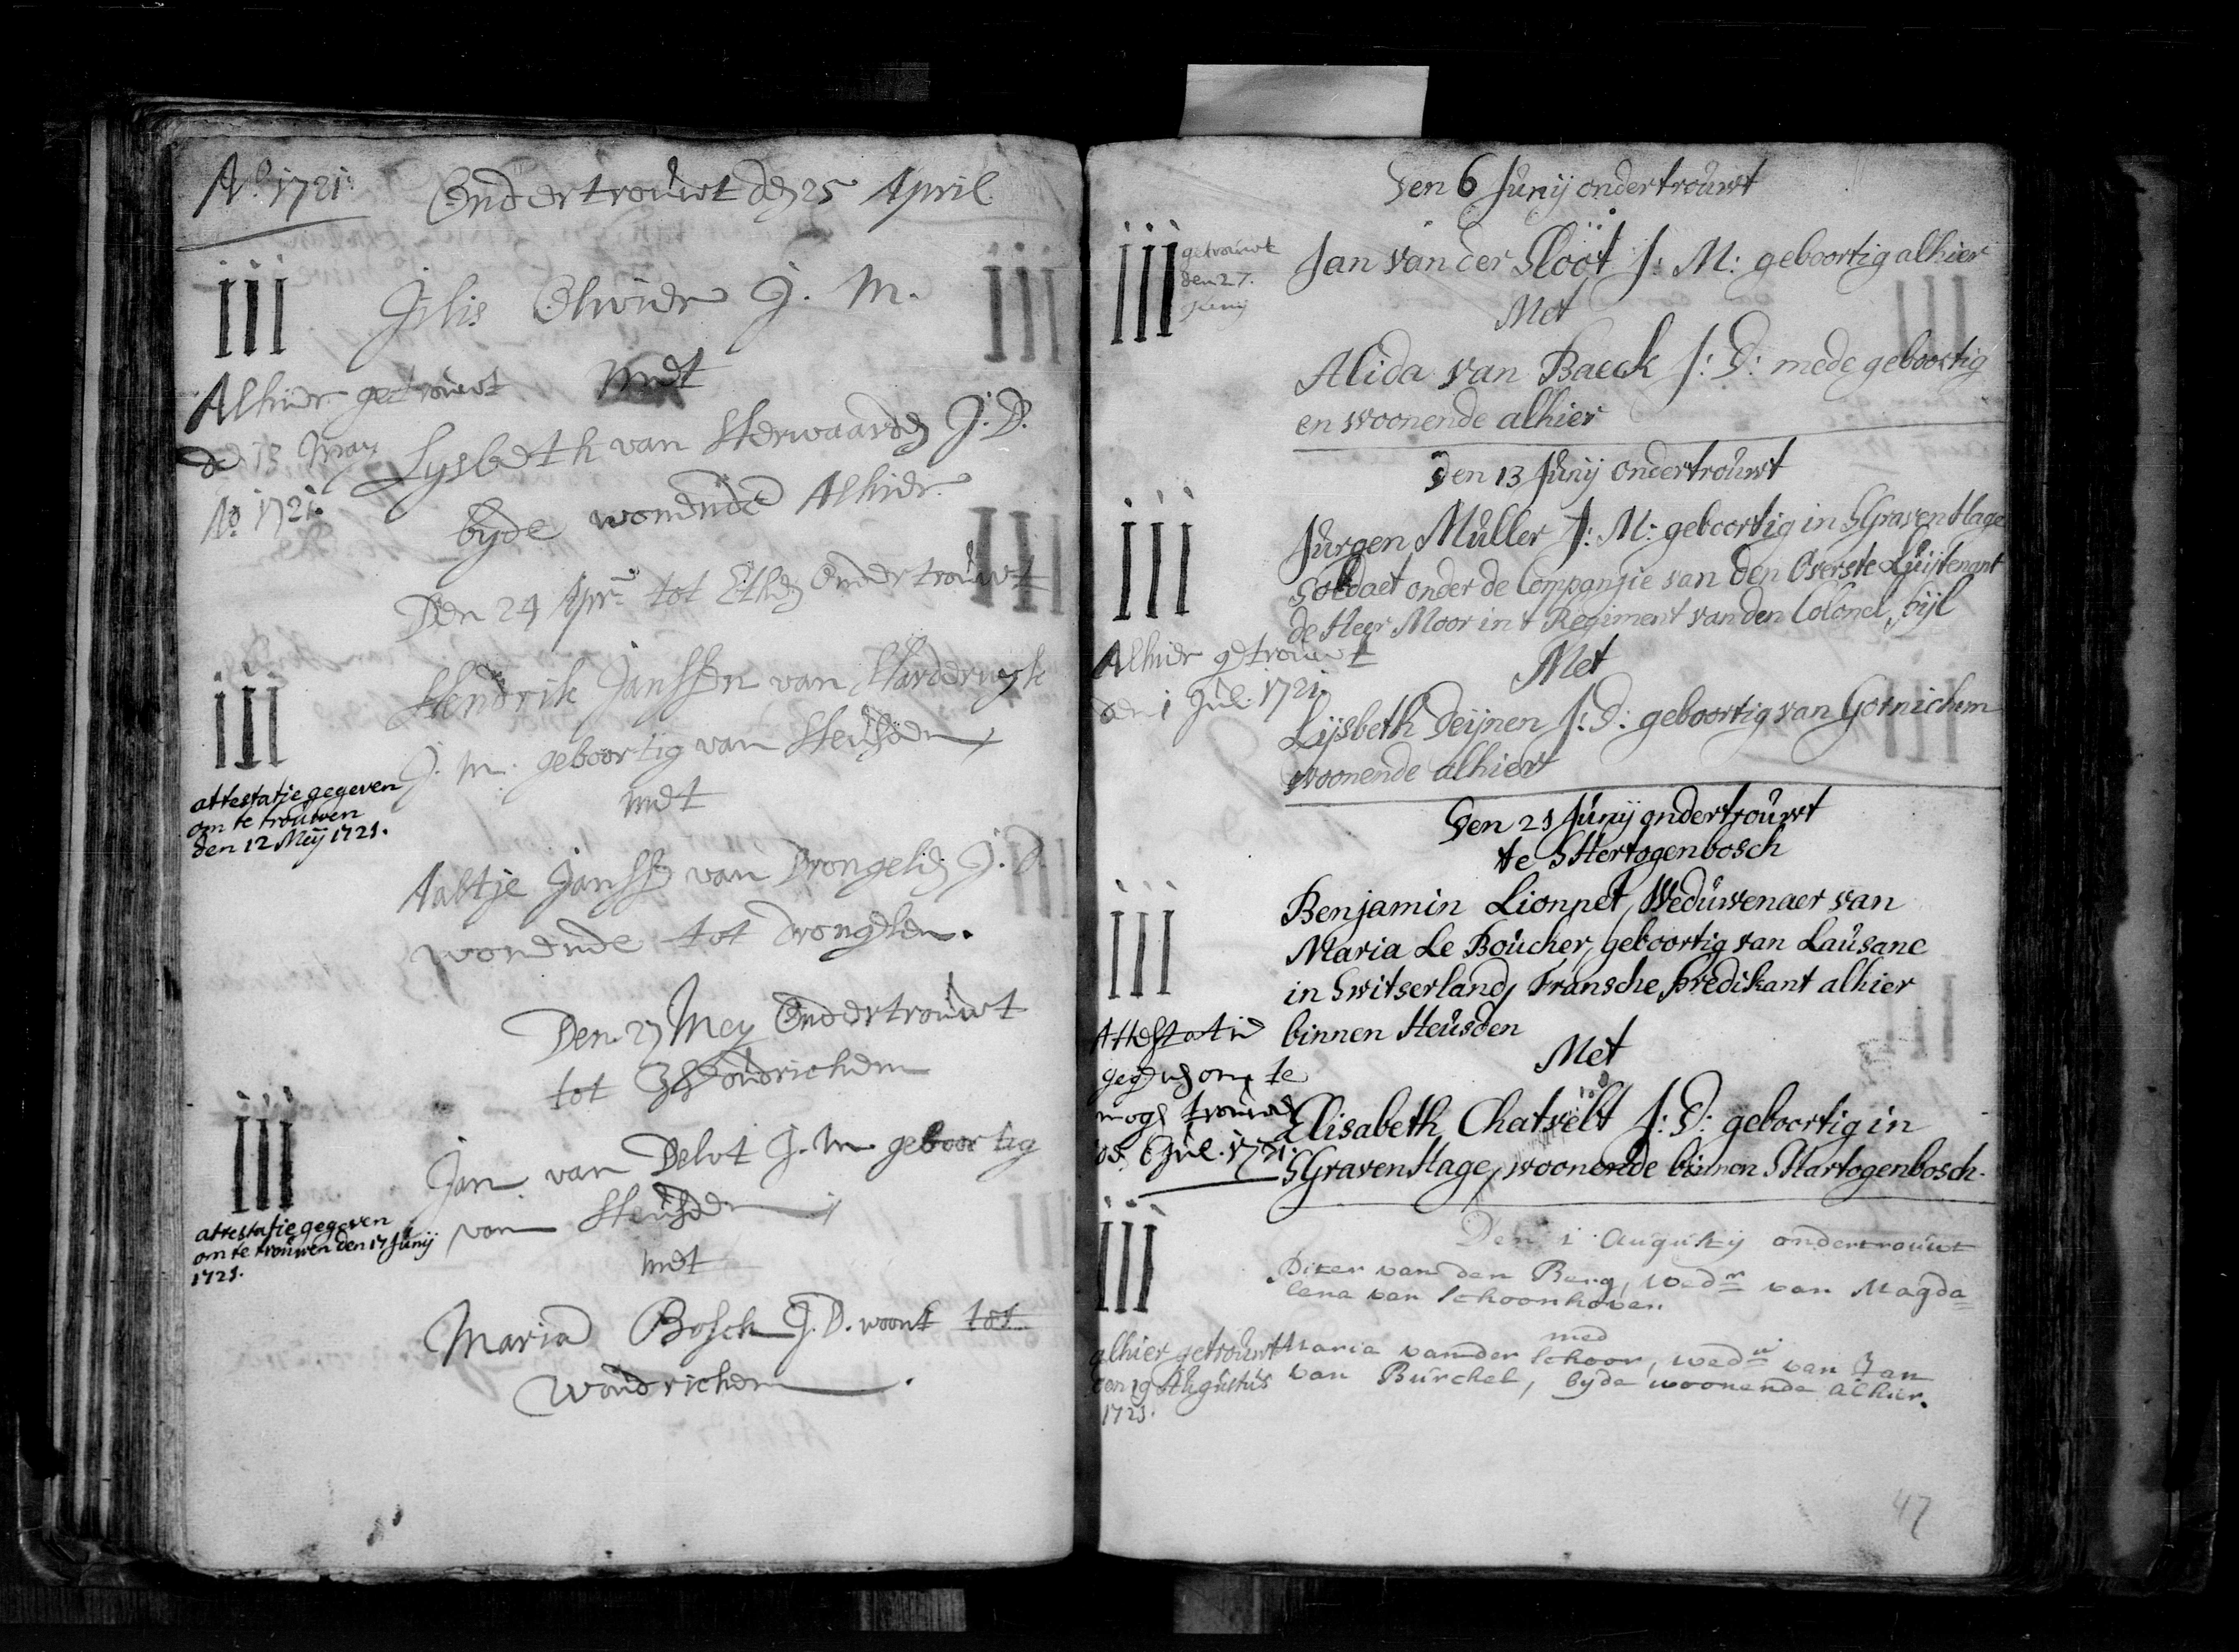 Ao. 1721.
Ondertrouwt den 25 April
iii
Jilis Olivier J. M.
met
Alhier getrouwt
de 13 May
Ao. 1721.
Lysbeth van Herwaarden J. D.
byde wonende Alhier.
Den 24 Apr. tot Ethen Ondertrouwt
iii
Hendrik Janssen van Harderwyk
J. M. geboortig van Heusden
met
attestatje gegeven
om te trouwen
den 12 Meij 1721.
Aaltje Janssen van Drongelen J. D.
wonende tot Drongelen.
Den 27 Mey Ondertrouwt
tot Woudrichem
iii
Jan van Delvt J. M. geboortig
van Heusden
met
attestatje gegeven
om te trouwen den 17 Junij
1721.
Maria Bosch J. D. woont tot
Woudrichem.
Den 6 Junij ondertrouwt
iii
getrouwt
den 27.
Junij
Jan van der Sloot J: M: geboortig alhier
Met
Alida van Baeck J: D: mede geboortig
en woonende alhier
Den 13 Junij ondertrouwt
iii
Jurgen Muller J: M: geboortig in SGravenHage
Soldaet onder de Companjie van den Overste Luijtenant
de Heer Moor in t Regiment van den Colonel, bijl
Met
Alhier getrouwt
den 1 Jul. 1721.
Lijsbeth Deijnen J: D: geboortig van Gornichem
woonende alhier
Den 21 Junij ondertrouwt
te SHertogenbosch
iii
Benjamin Lionnet, Weduwenaer van
Maria Le Boucher, geboortig van Lausane
in Switserland, Fransche predikant alhier
binnen Heusden
Met
Attestatie
gegeven om te
mogen trouwen
de. 6 Jul. 1721.
Elisabeth Chatvelt J: D: geboortig in
SGravenHage, woonende binnen SHartogenbosch.
iii
Den 1 Augusty ondertrouwt
Piter van den Berg, wedr van Magda=
lena van Schoonhoven
med
alhier getrouwt
den 19 Augustus
1721.
Maria van der Schoor, wedu van Jan
van Burchel, byde woonende alhier.
47